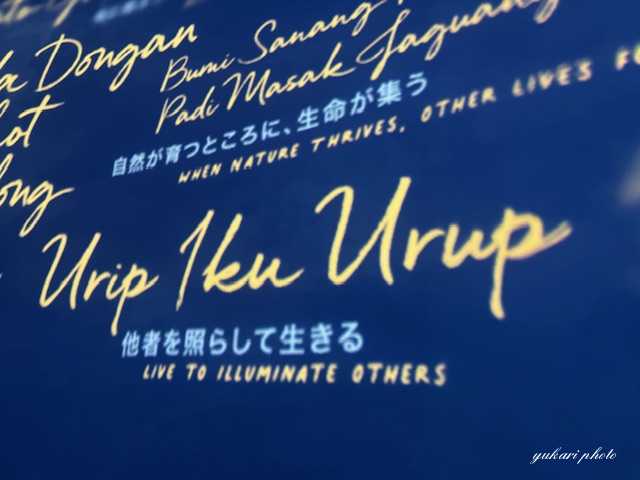 a Dongan
Bumi Sanang
Padi Masak Jaguang
ot
自然が育つところに、生命が集う
WHEN NATURE THRIVES, OTHER LIVES FO
ong
Urip Iku Urup
他者を照らして生きる
LIVE TO ILLUMINATE OTHERS
yukari photo